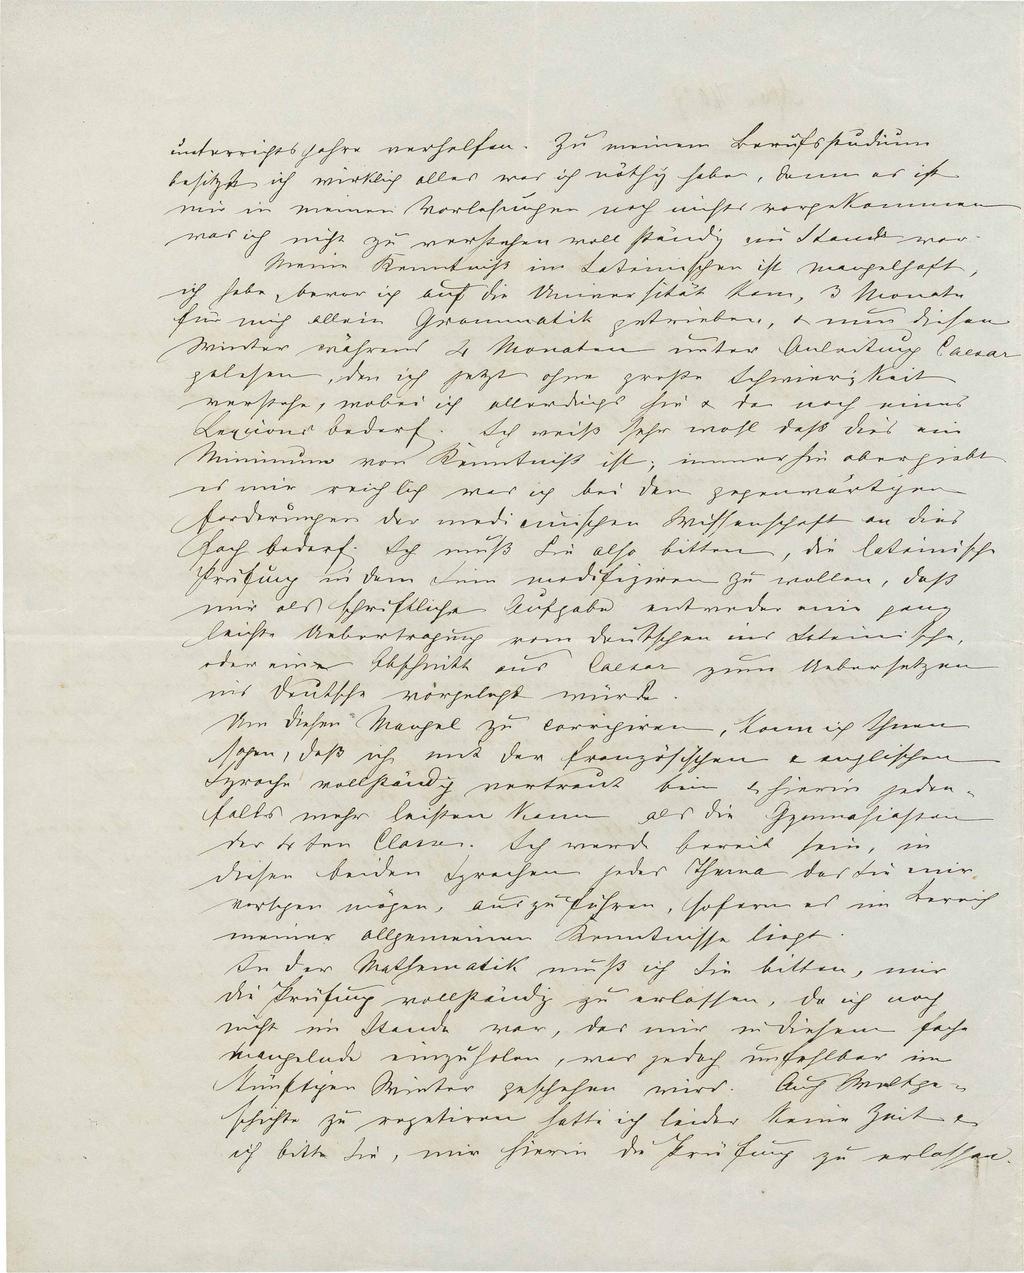 unterrichtsjahre verhelfen. Zu meinem Berufsstudium
besitze ich wirklich alles was ich nöthig habe, denn es ist
mir in meinen Vorlesungen noch nichts vorgekommen
was ich nicht zu verstehen vollständig im Stande war.
Meine Kenntniß im Lateinischen ist mangelhaft,
ich habe, bevor ich auf die Universität kam, 3 Monate
für mich allein Grammatik getrieben, & nun diesen
Winter während 4 Monaten unter Anleitung Caesar
gelesen, den ich jetzt ohne große Schwierigkeit
verstehe, wobei ich allerdings hie & da noch eines
Lexicons bedarf. Ich weiß sehr wohl daß dies ein
Minimum von Kenntniß ist; immerhin aber giebt
es mir reichlich was ich bei den gegenwärtigen
Forderungen der medicinischen Wissenschaft an dies
Fach bedarf. Ich muß Sie also bitten, die lateinische
Prüfung in dem Sinn modifiziren zu wollen, daß
mir als schriftliche Aufgabe entweder eine ganz
leichte Uebertragung vom Deutschen ins Lateinische,
oder ein Abschnitt aus Caesar zum Uebersetzen
ins Deutsche vorgelegt würde.
Um diesen Mangel zu corrigiren, kann ich Ihnen
sagen, daß ich mit der französischen & englischen
Sprache vollständig vertraut bin & hierin jeden-
falls mehr leisten kann als die Gymnasiasten
der 4ten Classe. Ich werde bereit sein, in
diesen beiden Sprachen jedes Thema das Sie mir
vorlegen mögen, auszuführen, sofern es im Bereich
meiner allgemeinen Kenntnisse liegt.
In der Mathematik muß ich Sie bitten, mir
die Prüfung vollständig zu erlassen, da ich noch
nicht im Stande war, das mir in diesem Fache
mangelnde einzuholen, was jedoch unfehlbar im
künftigen Winter geschehen wird. Auch Weltge-
schichte zu repetiren hatte ich leider keine Zeit &
ich bitte Sie, mir hierin die Prüfung zu erlassen.